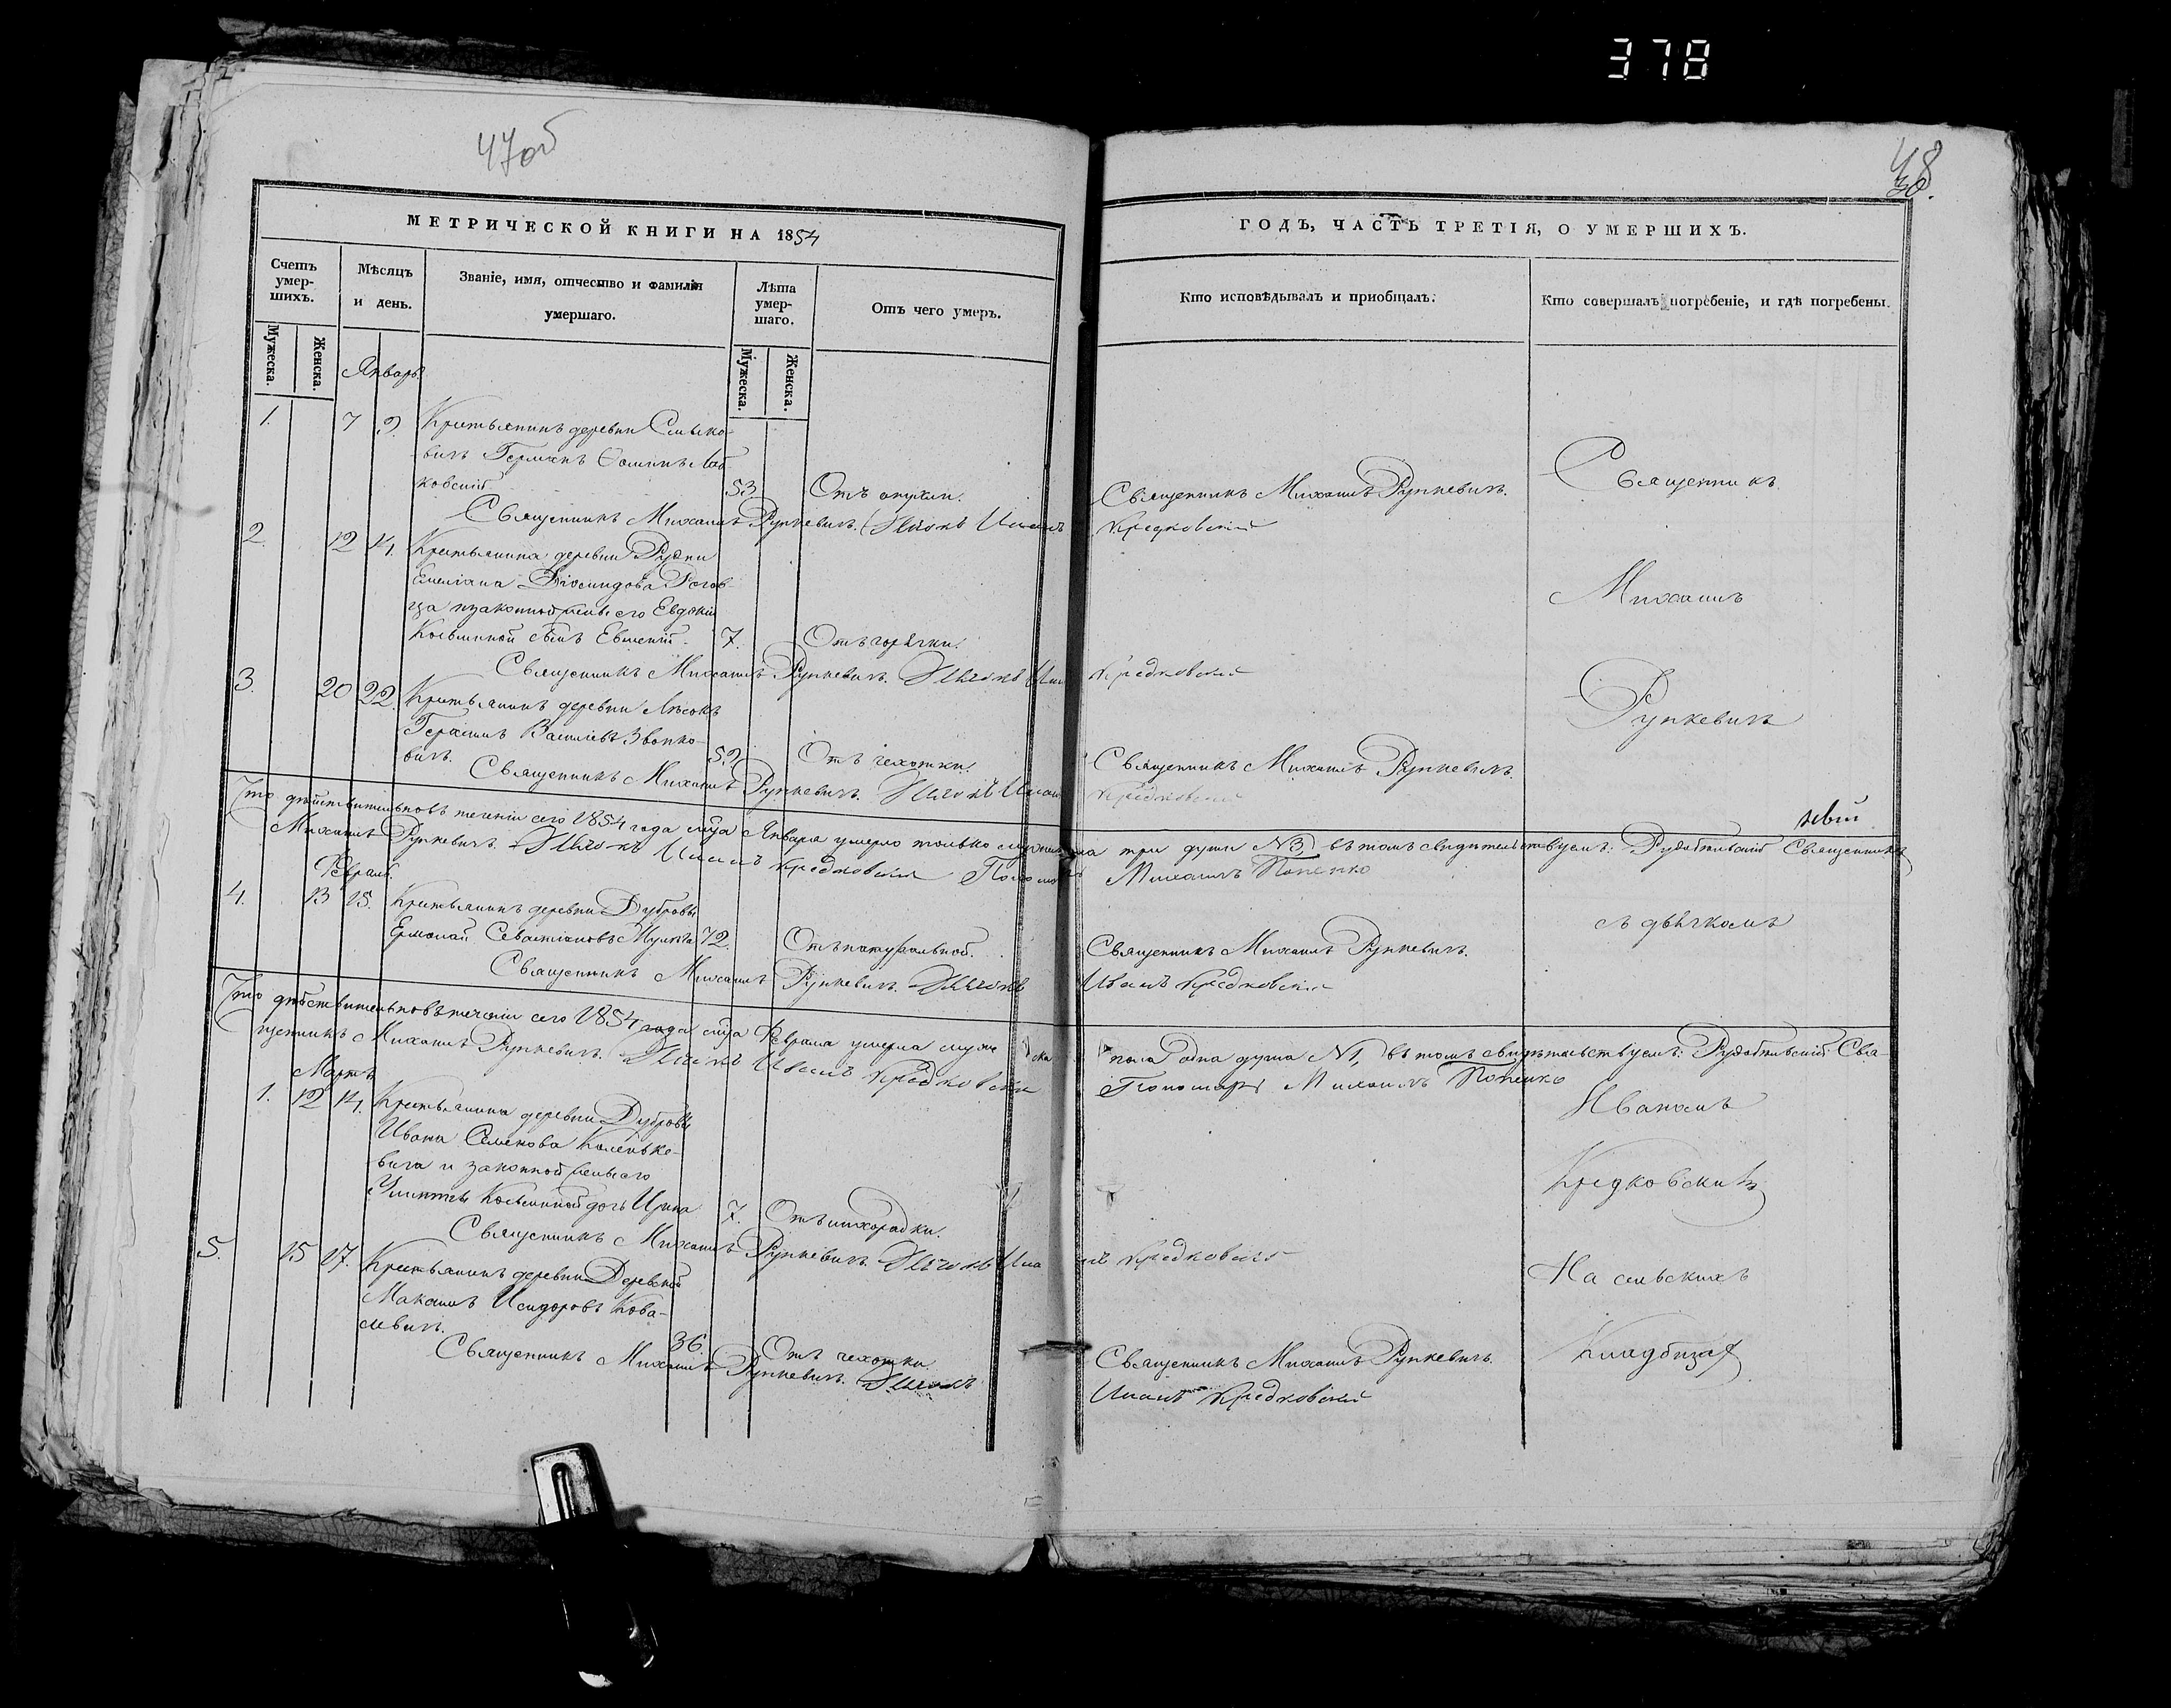 378
47об
48
30.
МЕТРИЧЕСКОЙ КНИГИ НА 1854
ГОДЪ, ЧАСТЬ ТРЕТІЯ, О УМЕРШИХЪ.
Счетъ умер-шихъ.
Мужеска.
Женска.
Мѣсяцъ и день.
Званіе, имя, отчество и фамилія умершаго.
Лѣта умер-шаго.
Мужеска.
Женска.
Отъ чего умеръ.
Кто исповѣдывалъ и приобщалъ.
Кто совершалъ погребеніе, и гдѣ погребены.
Январь
1. 7 9. Крестьянинъ деревни
вичъ Германъ Ѳоминъ
ковскій 53. Отъ опухли. Священникъ Михаилъ Рункевичъ.
Священникъ Михаилъ Рункевичъ. Дьячокъ Иоаннъ Кредковскій
2. 12 14. Крестьянина деревни Рудни
Емеліана
законной жены его Евдокіи
Косьминой сынъ Евменій 7. Отъ горячки.
Священникъ Михаилъ Рункевичъ. Дьячокъ Кредковскій
3. 20 22. Крестьянинъ деревни Лѣсокъ
Герасимъ Василіевъ Звонко-
вичъ. 52 Отъ чехотки. Священникъ Михаилъ Рункевичъ.
Священникъ Михаилъ Рункевичъ. Дьячокъ Иоаннъ Кредковскій
Что дѣйствительно въ теченіи сего 1854 года м҃ца Января умерло только мужеска три души N3, въ томъ свидѣтельствуемъ: Священникъ
Михаилъ Рункевичъ Дьячокъ Иоаннъ Кредковскій Пономарь Михаилъ Попенко
Февраль
4. 13 15. Крестьянинъ деревни Дубровы
Ермолай Севастіановъ 72. Отъ натуральной. Священникъ Михаилъ Рункевичъ.
Священникъ Михаилъ Рункевичъ. Дьячокъ Иванъ Кредковскій
Что дѣйствительно въ теченіи сего 1854 года м҃ца Февраля умерла мужеска пола одна душа N1, въ томъ свидѣтельствуемъ: Свя-
щенникъ Михаилъ Рункевичъ. Дьячокъ Иванъ Кредковскій Пономарь Михаилъ Попенко
Мартъ
1. 12 14. Крестьянина деревни Дубровы
Ивана Семенова Каленьке-
вича и законной жены его
Косьминой дочь Ирина 7. Отъ лихорадки.
Священникъ Михаилъ Рункевичъ. Дьячокъ Кредковскій
5. 15 17. Крестьянинъ деревни
Максимъ Исидоровъ Кова-
левичъ. 36. Отъ чехотки. Священникъ Михаилъ Рункевичъ.
Священникъ Михаилъ Рункевичъ. Дьячокъ Иоаннъ Кредковскій
Священникъ
Михаилъ
Рункевичъ
съ дьячкомъ
Иваномъ
Кредковскимъ
На сельскихъ
Кладбищах